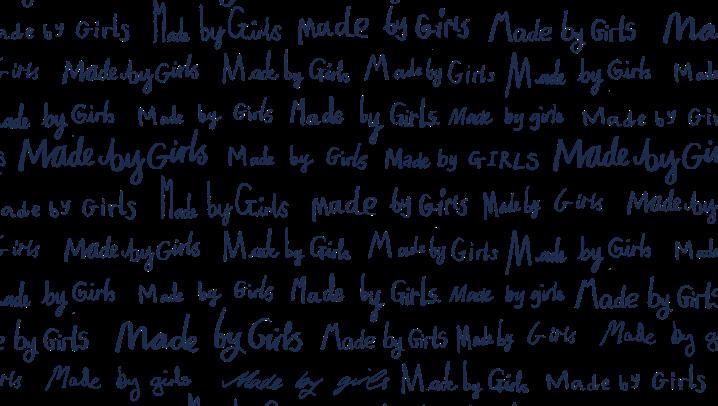 ade by Girls Made by Girls Made by Girls Made by Girls Ma
Girls Made by Girls Made by Girls Made by Girls Made by Girls Mad
ade by Girls Made by Girls Made by Girls. Made by girls Made by Gir
s Made by Girls Made by Girls Made by GIRLS Made by Gi
ade by Girls Made by Girls Made by Girls Made by Girls Made by
Girls Made by Girls Made by Girls Made by Girls Made by Girls Mad
ade by Girls Made by Girls Made by Girls. Made by girls Made by Girls
e by Girls Made by Girls Made by Girls Made by Girls Made by g
rls Made by girls Made by girls Made by Girls Made by Girls
Made by Girls